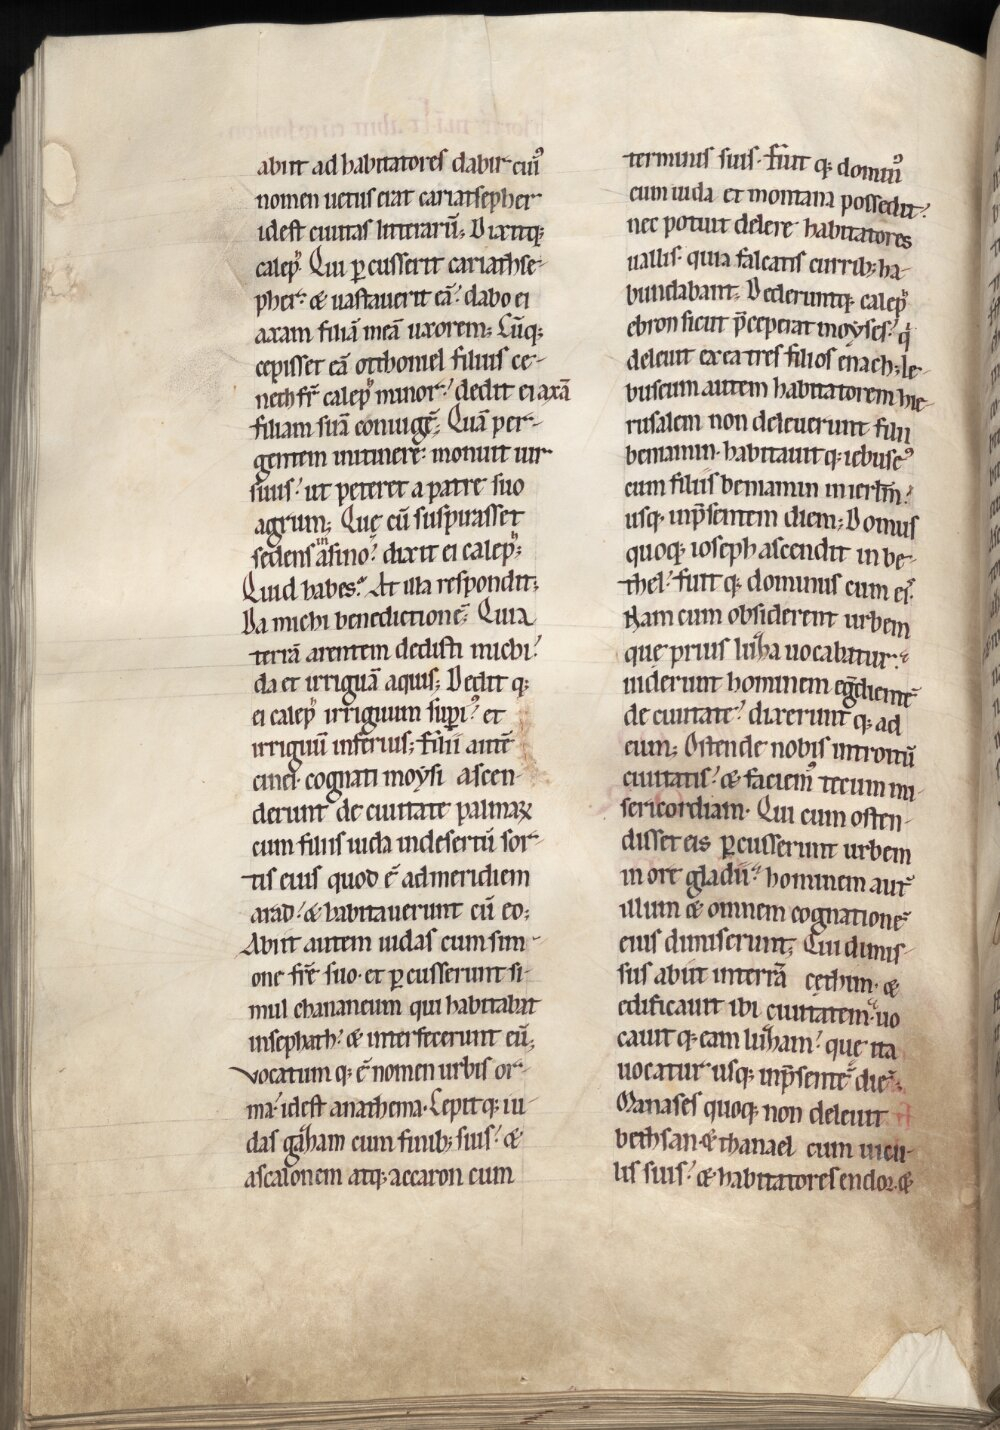 abiit ad habitatores dabir cui᷒
nomen uetus erat cariatsepher
idest ciuitas litterarū; Dixitq;
calep̆. Qui ꝑcusserit cariathse-
pher: & uastauerit eā? dabo ei
axam filiā meā uxorem; Cūq;
cepisset eā othoniel filius ce-
neth fr̄ calep̆ minor? dedit ei axā
filiam suā coniugē; Quā per-
gentem initinere: monuit uir
suus? ut peteret a patre suo
agrum; Quę cū suspirasset
sedens in asino? dixit ei calep̆;
Quid habes? At illa respondit;
Da michi benedictionē; Quia
terrā arentem dedisti michi?
da et irriguā aquis; Dedit q;
ei calep̆ irriguum suꝑi᷒ et
irriguū inferius; filii autē
cinei cognati moysi ascen-
derunt de ciuitate palmaꝝ
cum filiis iuda indesertū sor-
tis eius quod ē admeridiem
arad? & habitauerunt cū eo;
Abiit autem iudas cum sim-
one fr̄e suo. et ꝑcusserunt si-
mul chananeum qui habitabat
insephath? & interfecerunt eū;
vocatum q; ē nomen urbis or-
ma? idest anathema. Cepit q; iu-
das gaham cum finib; suis? &
ascalonem atq; accaron cum
terminis suis. fuit q; domin᷒
cum iuda et montana possedit?
nec potuit delere habitatores
uallis. quia falcatis currib; ha-
bundabant; Dederuntq; calep̆
ebron sicut p̄ceperat moyses? q̆
deleuit ex ea tres filios enach; Ie-
buseum autem habitatorem hie-
rusalem non deleuerunt filii
beniamin. habitauit q; iebuse᷒
cum filiis beniamin in ierlm̄?
usq; inp̄sentem diem; Domus
quoq; ioseph ascendit in be-
thel? fuit q; dominus cum eis.
Nam cum obsiderent urbem
que prius luha uocabatur?
uiderunt hominem eg̅dientē
de ciuitate? dixerunt q; ad
eum; Ostende nobis introitū
ciuitatis? & faciem᷒ tecum mi-
sericordiam. Qui cum osten-
disset eis ꝑcusserunt urbem
in ore gladii? hominem aut̄
illum & omnem cognationē
eius dimiserunt; Qui dimis-
sus abiit interrā cethim. &
edificauit ibi ciuitatem. uo
cauit q; eam luham? que ita
uocatur usq; inp̄sentē diē;
Manases quoq; non deleuit
bethsan & thanael cum uicu-
lis suis? & habitatores endor. &